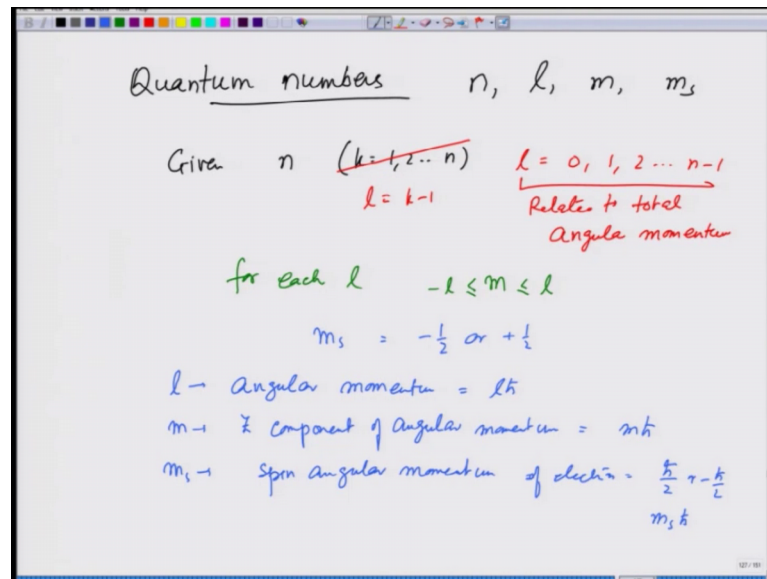 Quantum numbers n, l, m, ms
Given n (k=1,2.. n) l = 0, 1, 2 ... n-1
l = k-1 Relates to total
Angula momentum
for each l -l ≤ m ≤ l
ms = -1/2 or +1/2
l → angular momentum = lħ
m → z component of angular momentum = mħ
ms → spin angular momentum of electron = ħ/2 or -ħ/2
msħ
127 / 151